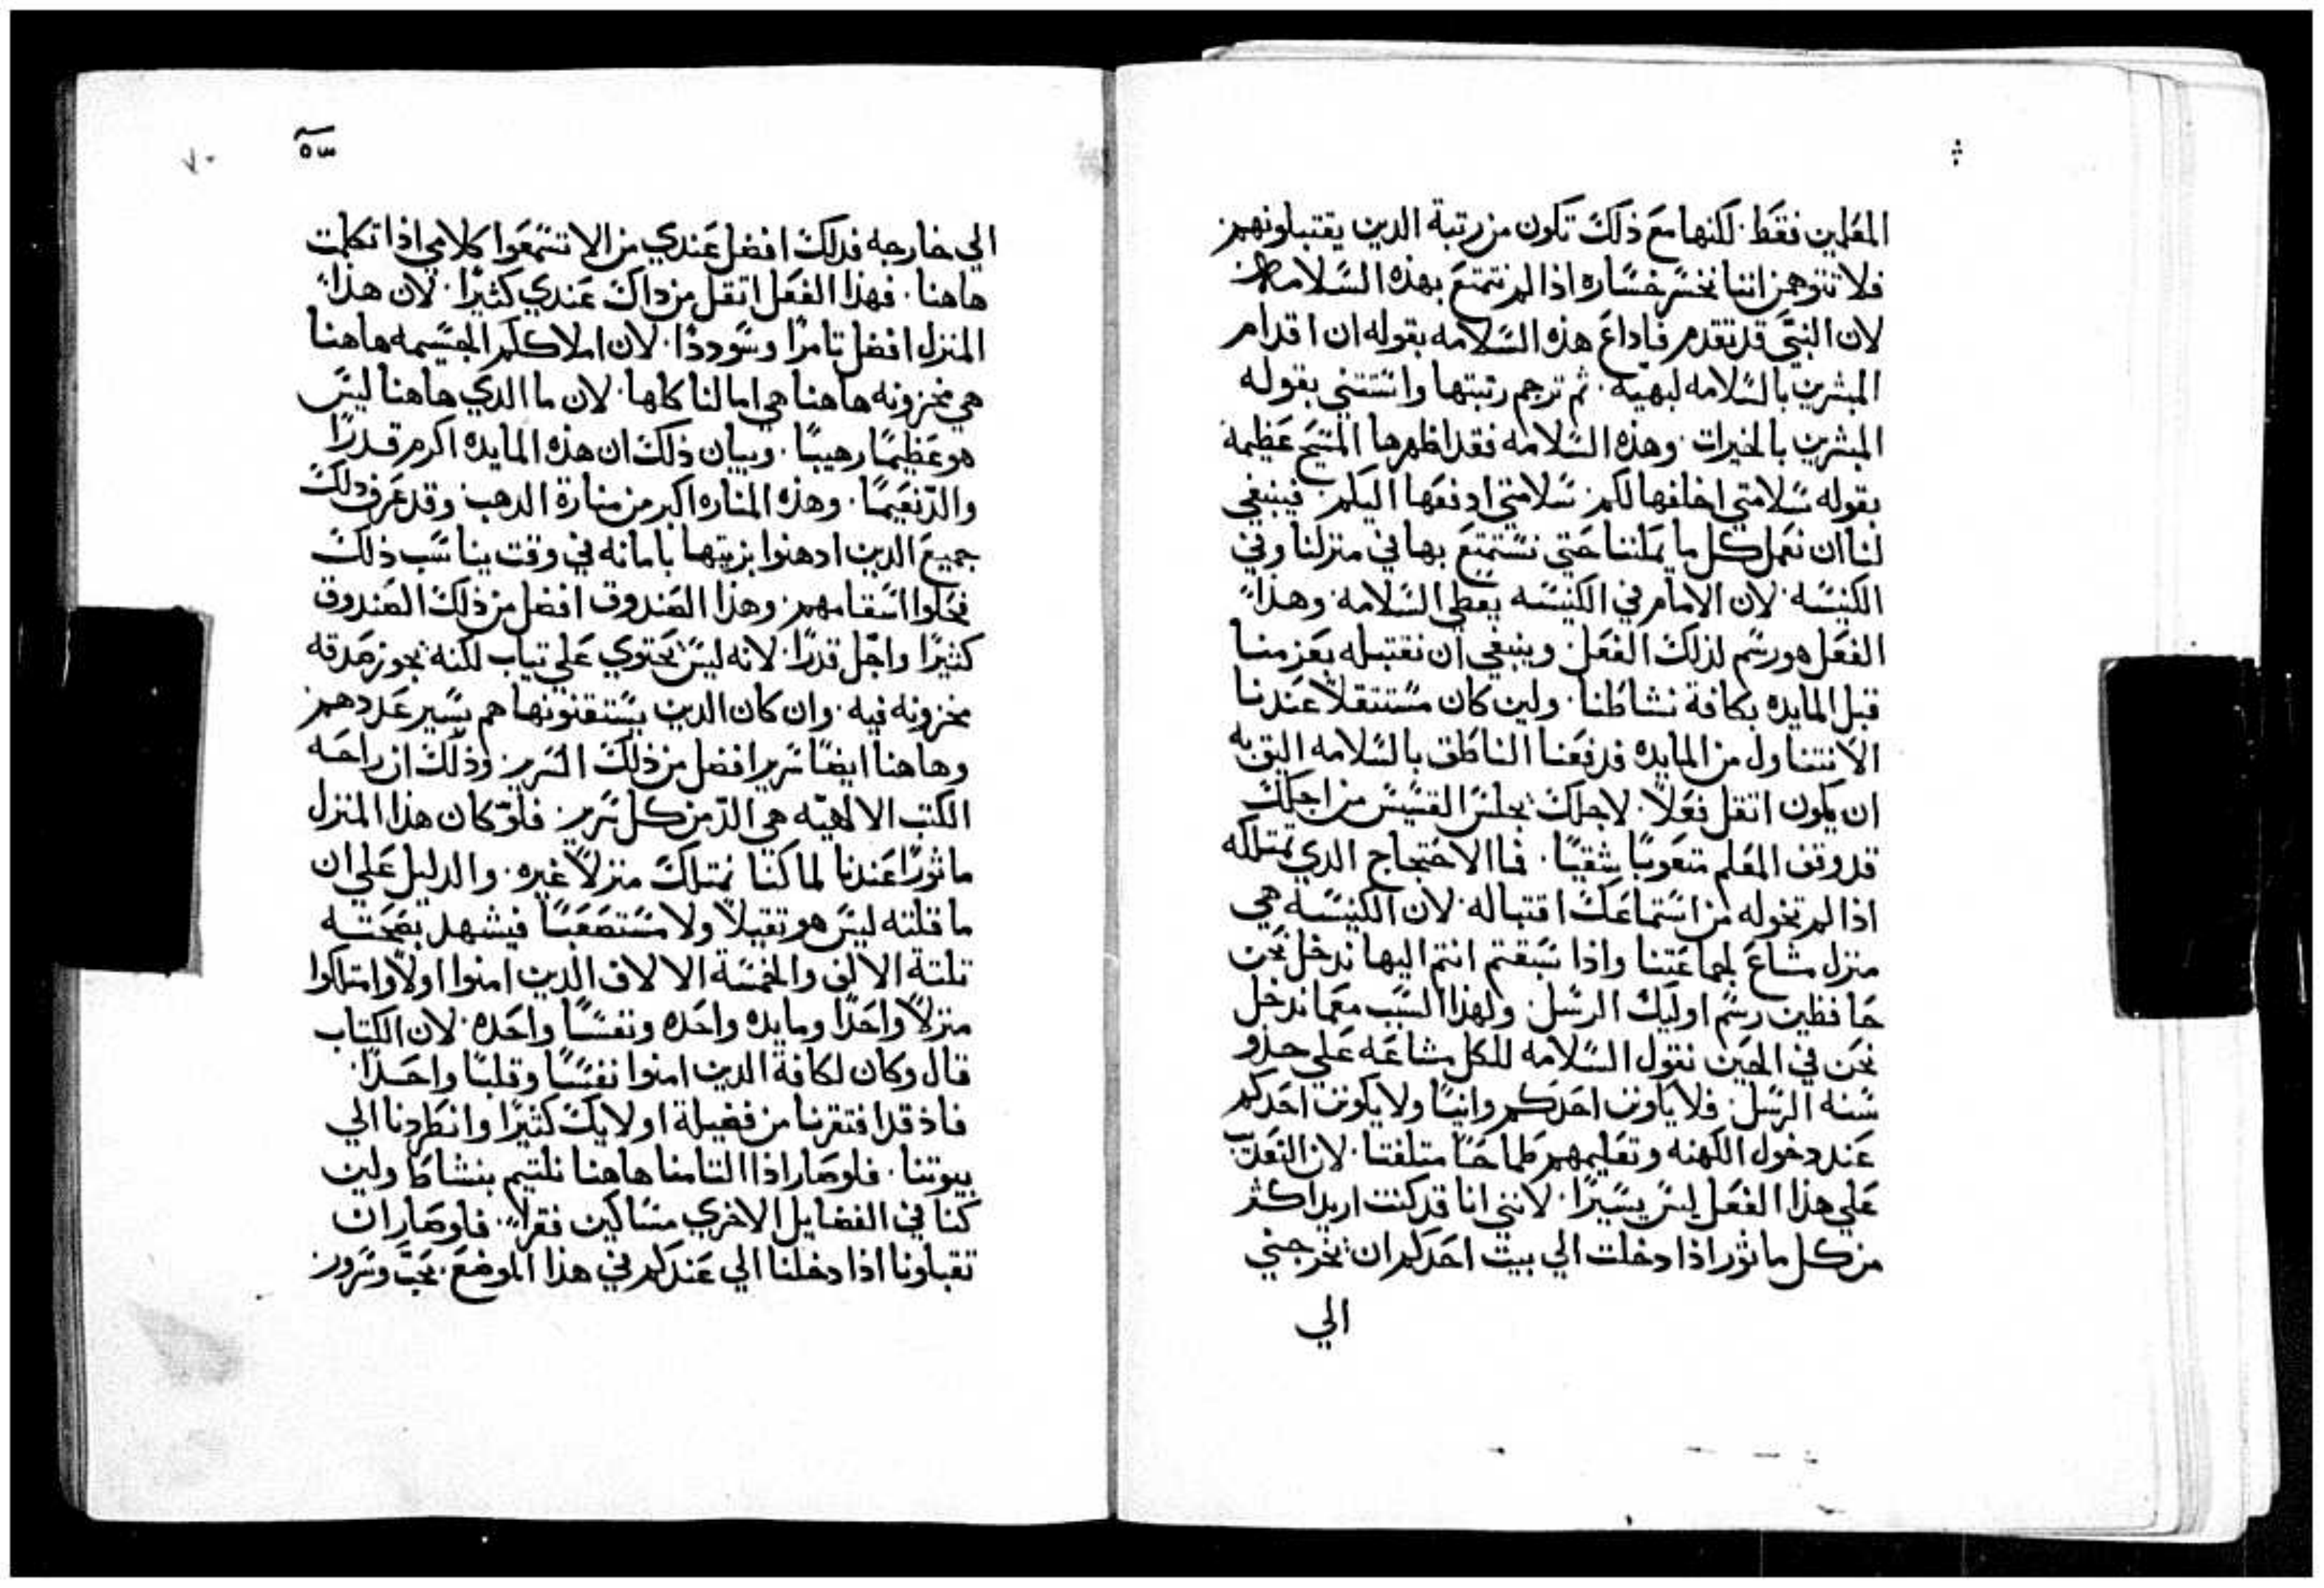 المعلمين فقط. لكنها مع ذلك تكون من رتبة الدين يقتبلونهم
فلا تتوهمن اننا نخسر خساره اذا لم نتمتع بهذه السلامه
لان النبي قد تقدم فاداع هذه السلامه بقوله ان اقدام
المبشرين بالسلامه لبهيه. ثم ترجم رتبتها واستتني بقوله
المبشرين بالخيرات. وهذه السلامه فقد اظهرها المسيح عظيمة
بقوله سلامتي اخلفها لكم. سلامتي ادفعها اليكم. فينبغي
لنا ان نعمل كل ما يمكننا حتى نستمتع بها في منزلنا وفي
الكنيسه. لان الامام في الكنيسه يعطي السلامه. وهذا
الفعل هو رسم لذلك الفعل. وينبغي ان نقتبله بعزمنا
قبل المايده بكافة نشاطنا. ولين كان مستتقلا عندنا
الا نتناول من المايده فدفعنا الناطق بالسلامه اليق به
ان يكون اتقل فعلا. لاجلك يجلس القسيس من اجلك
قد وقف المعلم متعوبا شقيا. فما الاحتجاج الدي تمتلكه
اذا لم تخوله من استماعك اقتباله. لان الكنيسه هي
منزل مشاع لجماعتنا واذا سبقتم انتم اليها ندخل نحن
حافظين رسم اوليك الرسل. ولهذا السبب معما ندخل
نحن في الحين نقول السلامه للكل مشاعه على حدو
سنه الرسل. فلا يكونن احدكم وانيا ولا يكونن احدكم
عند دخول الكهنه وتعليمهم طماحا متلفتا. لان التعدب
علي هذا الفعل ليس يسيرا. لانني انا قد كنت اريد اكثر
من كل ماثور اذا دخلت الي بيت احدكم ان يخرجني
الي
٥٣
٧٠
الي خارجه فدلك افضل عندي من الا تسمعوا كلامي اذا تكلمت
هاهنا. فهذا الفعل اتقل من داك عندي كثيرا. لان هذا
المنزل افضل تامرا وسوددا. لان املاككم الجسيمه هاهنا
هي مخزونه هاهنا هي امالنا كلها. لان ما الدي هاهنا ليس
هو عظيما رهيبا. وبيان ذلك ان هذه المايده اكرم قدرا
والد نعيما. وهذه المناره اكبر من منارة الدهب. وقد عرف دلك
جميع الدين ادهنوا بزيتها بامانه في وقت يناسب ذلك
فحلوا اسقامهم. وهذا الصندوق افضل من ذلك الصندوق
كثيرا واجل قدرا. لانه ليس يحتوي علي تياب لكنه يحوز صدقه
مخزونه فيه. وان كان الدين يستقنونها هم يسير عددهم
وهاهنا ايضا سرير افضل من ذلك السرير. وذلك ان راحه
الكتب الالاهيه هي الد من كل سرير. فلو كان هذا المنزل
ماثورا عندنا لما كنا نمتلك منزلا غيره. والدليل علي ان
ما قلته ليس هو تقيلا ولا مستصعبا فيشهد بصحته
تلتة الالف والخمسة الالاف الدين امنوا اولا وامتلكوا
منزلا واحدا ومايده واحده ونفسا واحده. لان الكتاب
قال وكان لكافة الدين امنوا نفسا وقلبا واحدا.
فاذ قد افتقرنا من فضيلة اولايك كثيرا وانطردنا الي
بيوتنا. فلو صار اذا التامنا هاهنا نلتيم بنشاط ولين
كنا في الفضايل الاخري مساكين فقرا. فلو صار ان
تقبلونا اذا دخلنا الي عندكم في هذا الموضع. بحب وسرور